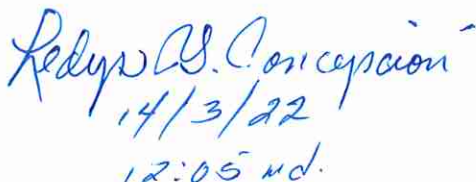 Ledys C. Concepción
14/3/22
12:05 md.